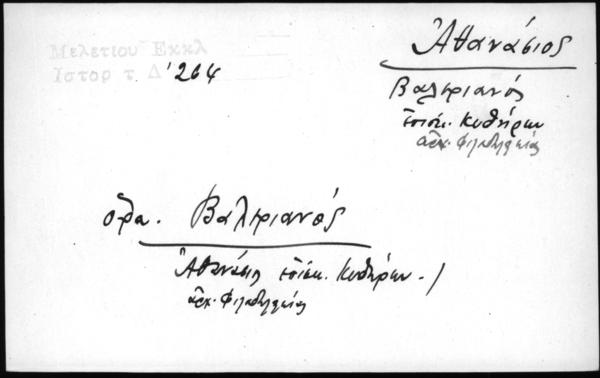 Μελετίου Ἐκκλ
Ἱστορ τ. Δ' 264
Ἀθανάσιος
Βαλεριανός
ἐπίσκ. Κυθήρων
ἀρχ. Φιλαδελφείας
ὅρα. Βαλεριανός
Ἀθανάσιος ἐπίσκ. Κυθήρων. /
ἀρχ. Φιλαδελφείας